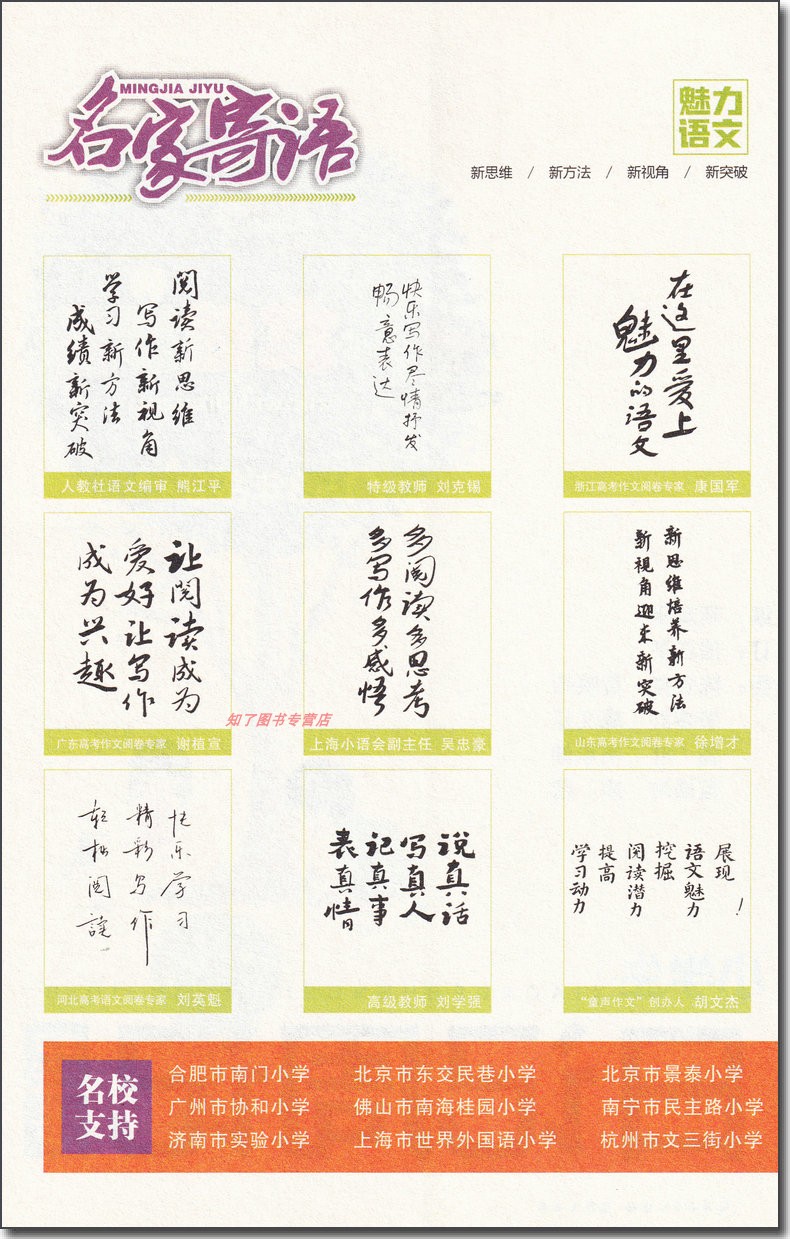 MINGJIA JIYU
名家寄语
魅力
语文
新思维 / 新方法 / 新视角 / 新突破
阅读新思维
写作新视角
学习新方法
成绩新突破
人教社语文编审 熊江平
快乐写作尽情抒发
畅意表达
特级教师 刘克锡
在这里爱上
魅力的语文
浙江高考作文阅卷专家 康国军
让阅读成为
爱好让写作
成为兴趣
广东高考作文阅卷专家 谢植宣
多阅读多思考
多写作多感悟
上海小语会副主任 吴忠豪
新思维培养新方法
新视角迎来新突破
山东高考作文阅卷专家 徐增才
知了图书专营店
快乐学习
精彩写作
轻松阅读
河北高考语文阅卷专家 刘英魁
说真话
写真人
记真事
表真情
高级教师 刘学强
展现
语文魅力
挖掘
阅读潜力
提高
学习动力!
“童声作文”创办人 胡文杰
名校
支持
合肥市南门小学 北京市东交民巷小学 北京市景泰小学
广州市协和小学 佛山市南海桂园小学 南宁市民主路小学
济南市实验小学 上海市世界外国语小学 杭州市文三街小学